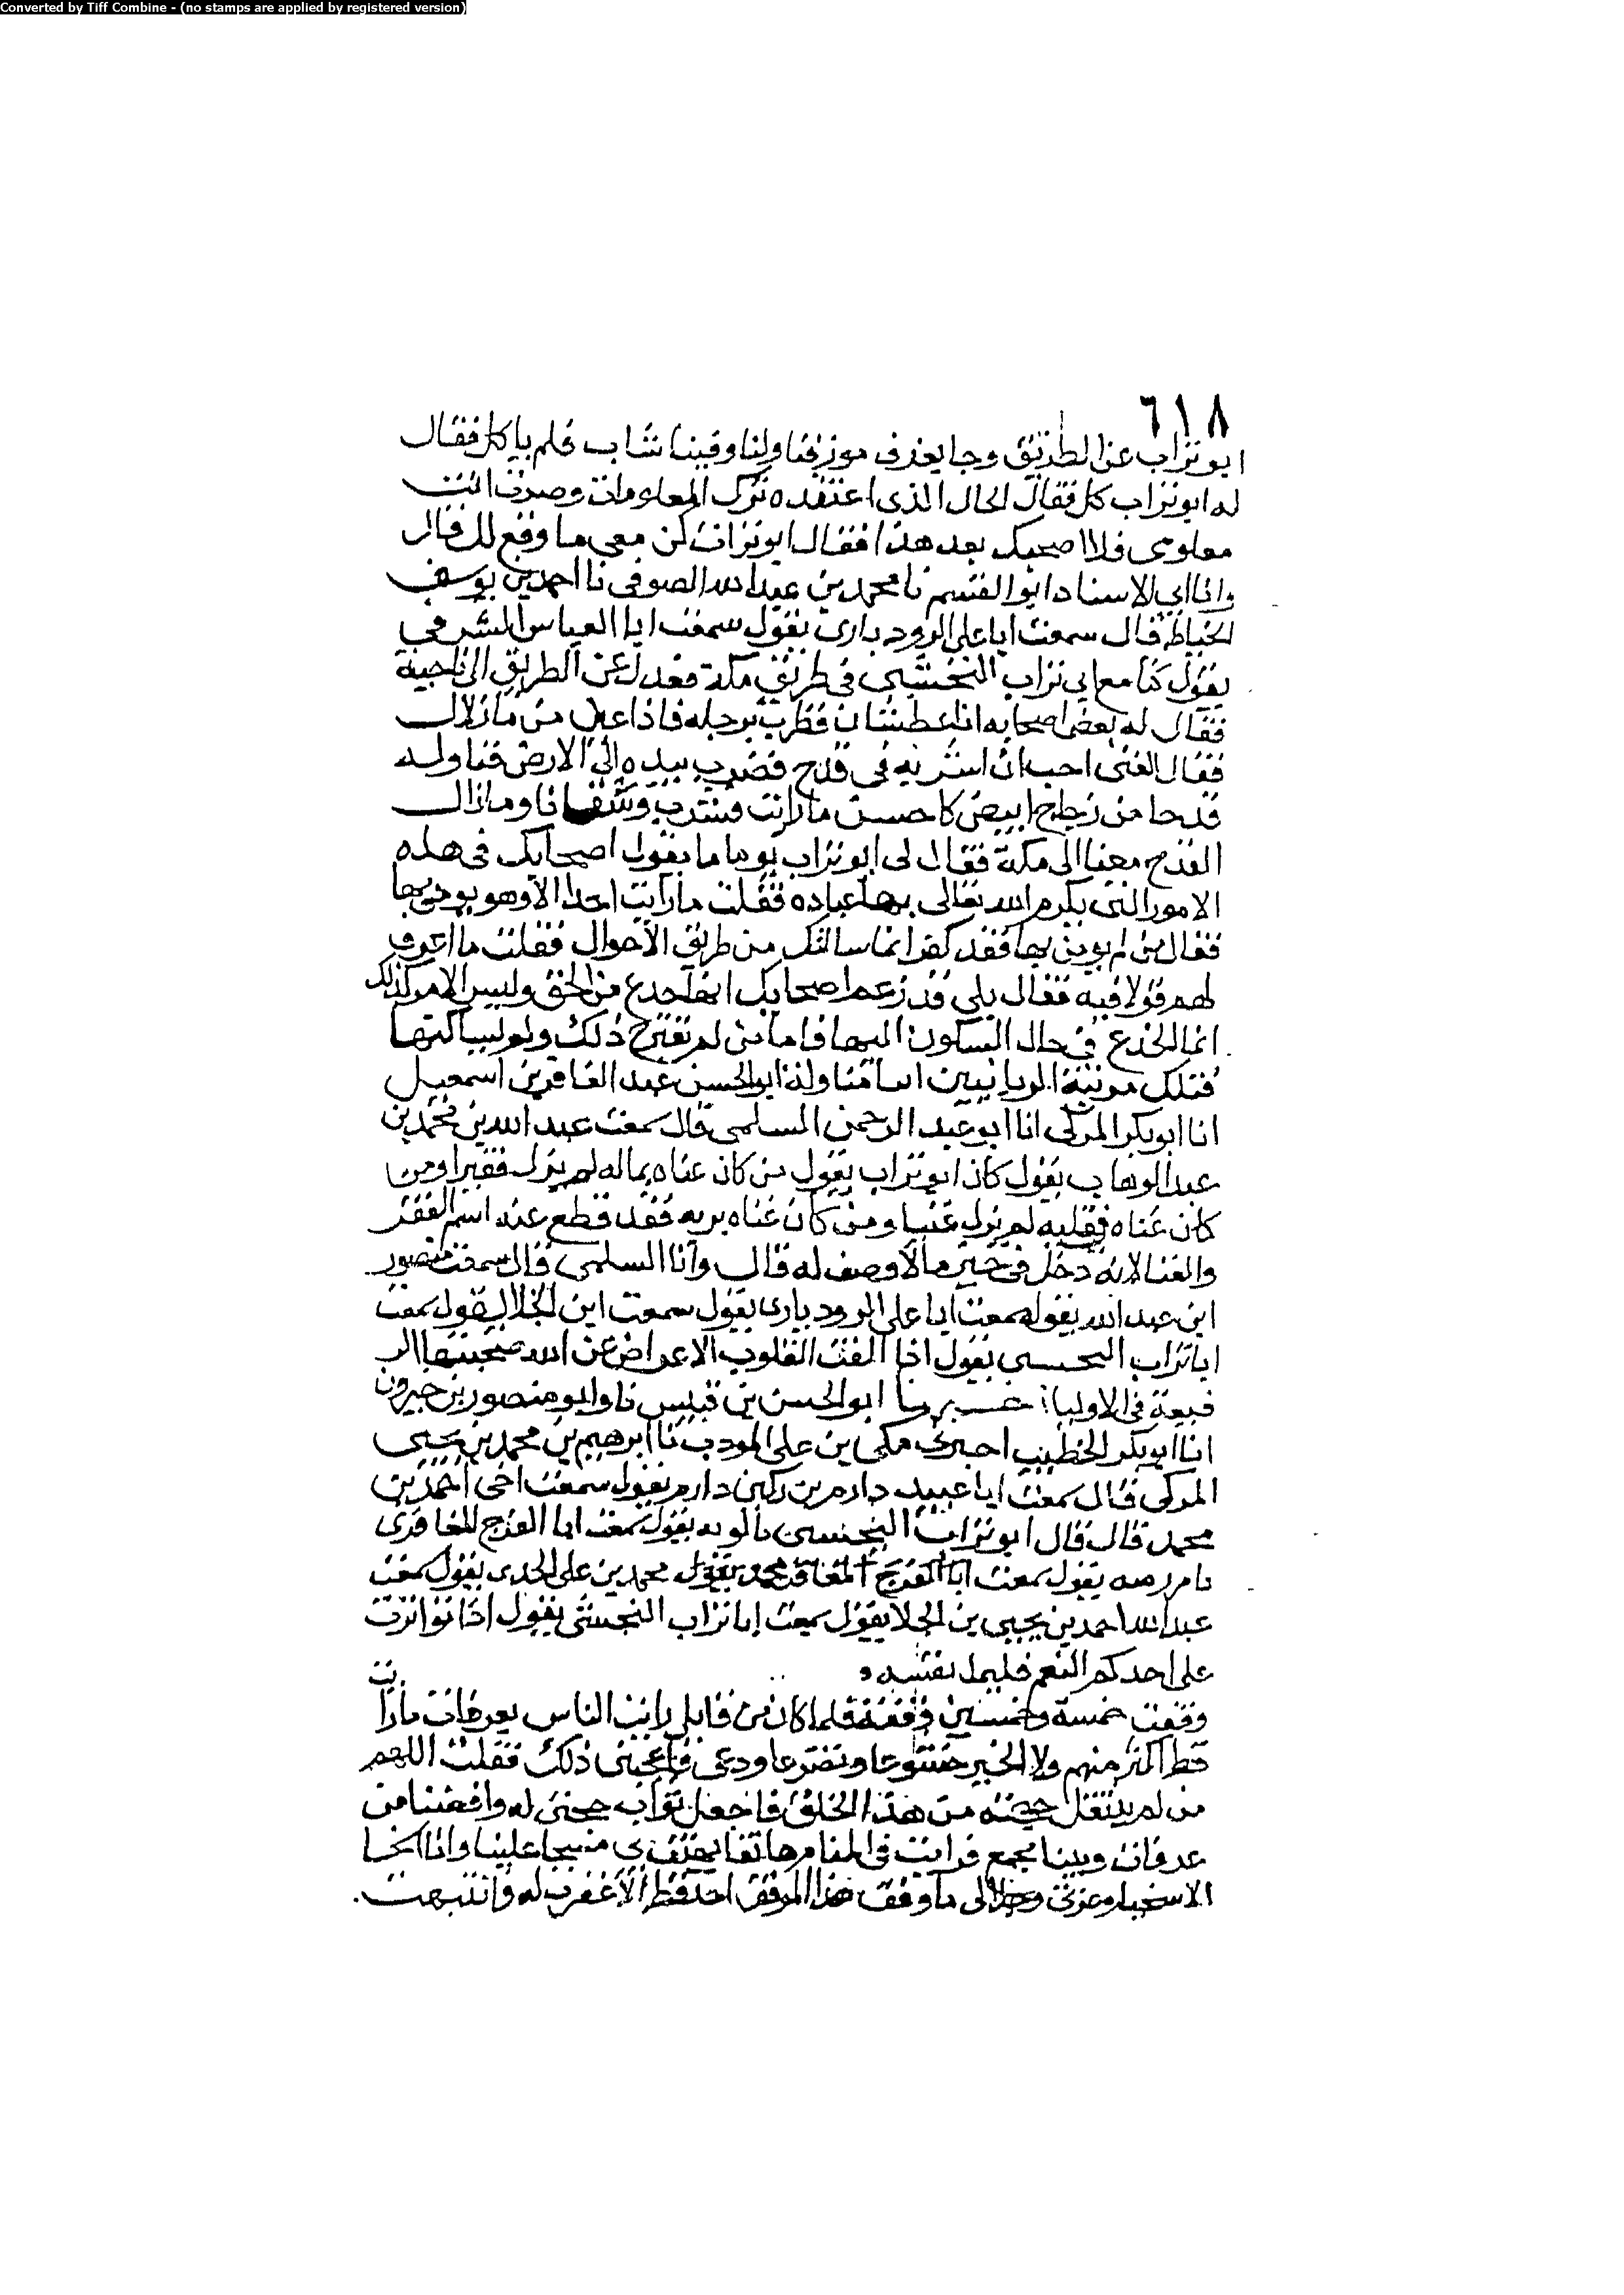 Converted by Tiff Combine - (no stamps are applied by registered version)
٦١٨
ابو تراب عن الطريق وجا بعذق موز فناولنا وفينا شاب فلم ياكل فقال
له ابو تراب كل فقال الحال الذى اعتقده ترك المعلومات وصرت انت
معلومى فلا اصحبك بعد هذا فقال ابو تراب كن معى ما وقع لك قال
وانا ابى الاسناد ابو القسم نا محمد بن عبدالله الصوفى نا احمد بن يوسف
الخياط قال سمعت ابا على الرودبارى يقول سمعت ابا العباس الشرفى
يقول كنا مع ابى تراب النخشبى فى طريق مكة فعدل عن الطريق الى ناحية
فقال له بعض اصحابه انا عطشان فضرب برجله فاذا عين من ما زلال
فقال الفتى احب ان اشربه فى قدح فضرب بيده الى الارض فناوله
قدحا من زجاج ابيض كاحسن ما رايت فشرب وسقانا وما زال
القدح معنا الى مكة فقال لى ابو تراب يوما ما يقول اصحابك فى هذه
الامور التى يكرم الله تعالى بها عباده فقلت ما رايت احدا الا وهو يومن بها
فقال من لم يومن بها فقد كفر انما سالتك من طريق الاحوال فقلت ما اعرف
لهم قولا فيه فقال بلى قد زعم اصحابك انها خدع من الحق وليس الامر كذلك
انما الخدع فى حال السكون اليها فاما من لم يقترح ذلك ولم يساكنها
فتلك مرتبة الربانيين انبا مناولة ابو الحسن عبد الغافر بن اسمعيل
انا ابو بكر المزكى انا ابو عبد الرحمن السلمى قال سمعت عبد الله بن محمد بن
عبد الوهاب يقول كان ابو تراب يقول من كان غناه بماله لم يزل فقيرا ومن
كان غناه بقلبه لم يزل غنيا ومن كان غناه بربه فقد قطع عنه اسم الفقر
والغنا لانه دخل فى حيز ما لا وصف له قال وانا السلمى قال سمعت منصور
ابن عبد الله يقول سمعت ابا على الرودبارى يقول سمعت ابن الجلا يقول سمعت
ابا تراب النخسبى يقول اذا الفت القلوب الاعراض عن الله صحبتها
فى الاوليا اخبرنا ابو الحسن بن قبيس نا وابو منصور بن خيرون
انا ابو بكر الخطيب اخبرنى مكى بن على المودب نا ابرهيم بن محمد بن يحيى
المزكى قال سمعت ابا عبيد دارم بن دارم يقول سمعت اخى احمد بن
محمد قال قال ابو تراب النخسبى يقول سمعت ابا الفرج المعافرى
يقول سمعت ابا الفرج محمد بن على يقول سمعت
عبدالله احمد بن يحيى بن الجلا يقول سمعت ابا تراب النخشبى يقول اذا تواترت
على احدكم النعم فليبك نفسه
وقفت خمسة وخمسين وقفة فلما كان من قابل رايت الناس بعرفات ما رايت
قط اكثر منهم ولا اكثر خشوعا وتضرعا ودعى فاعجبنى ذلك فقلت اللهم
من لم يتقبل حجته من هذا الخلق فاجعل ثواب حجتى له وافضنا من
عرفات وبتنا بجمع فرايت فى المنام هاتفا يهتف بى تتسخا علينا وانا اسخا
الاسخياء وعزتى وجلالى ما وقف هذا الموقف احد قط الا غفرت له وانتبهت.